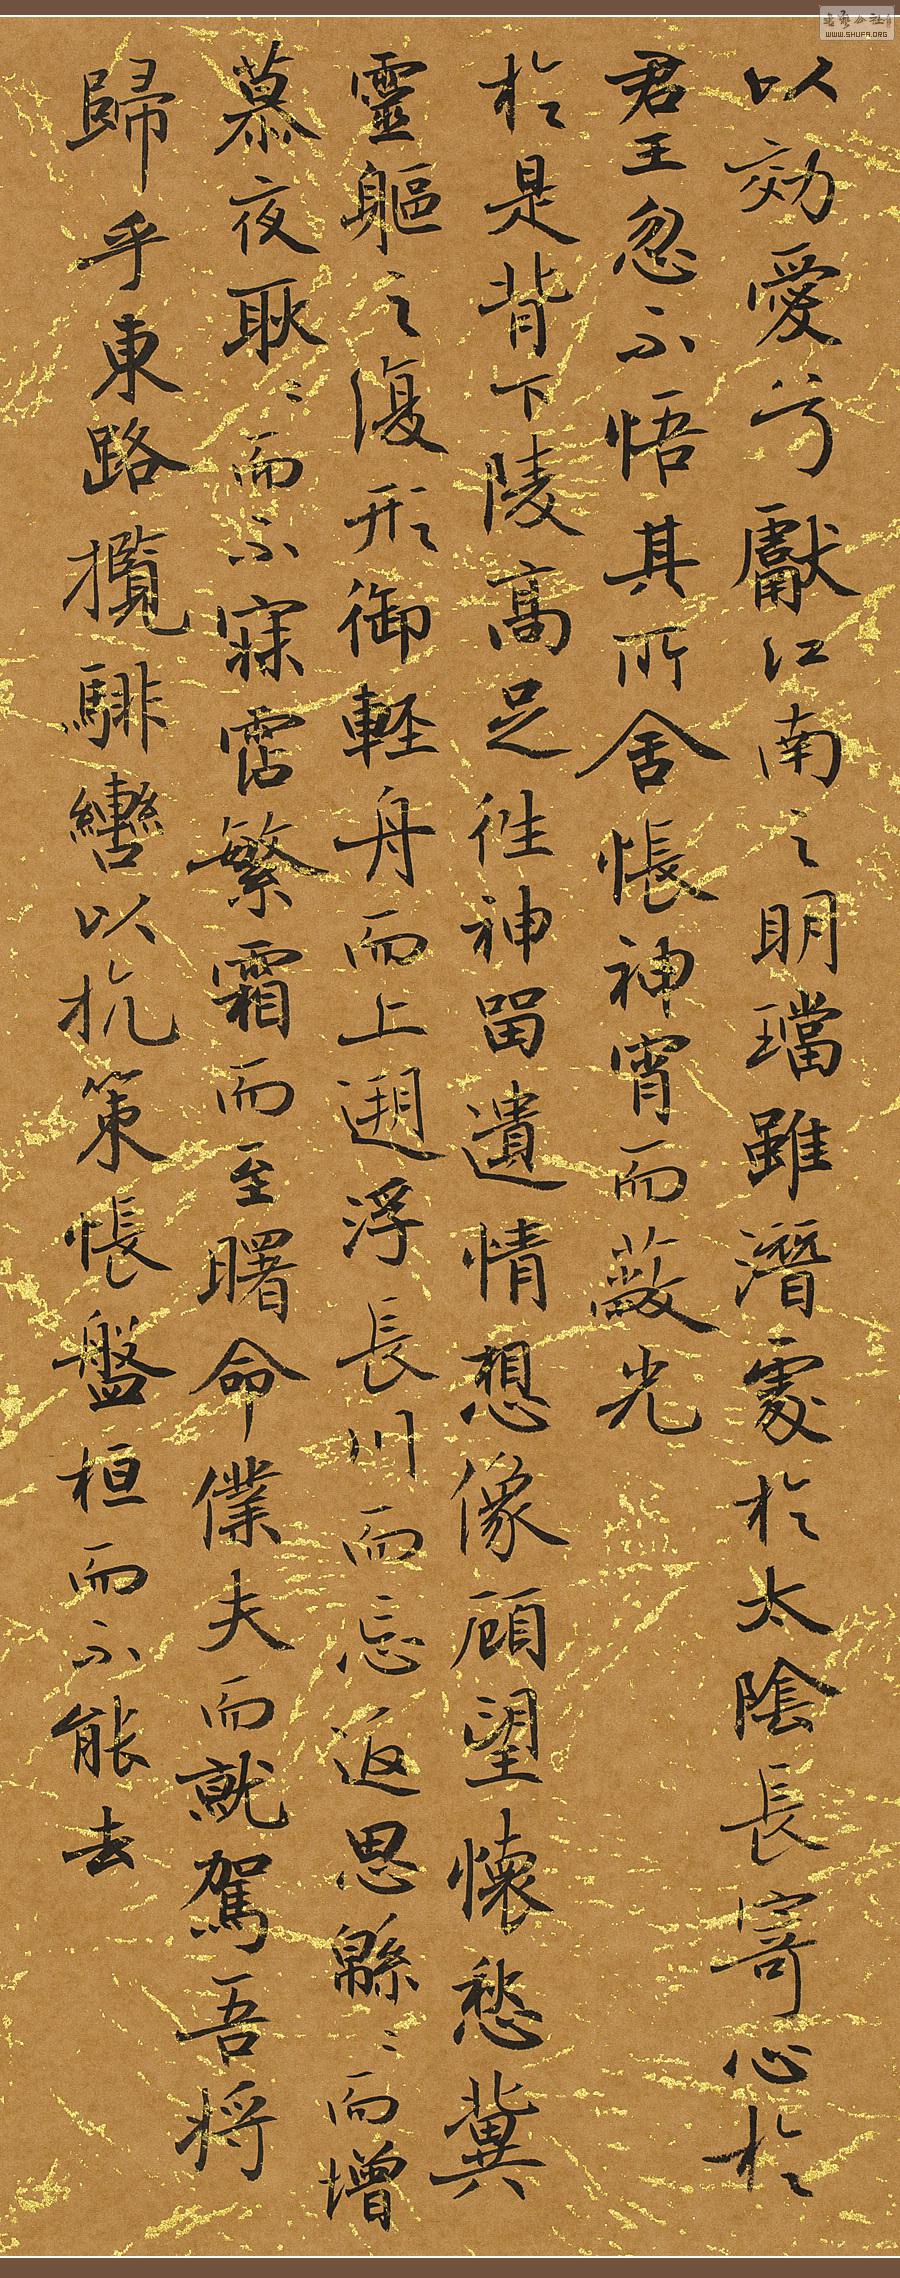 以効愛兮獻江南之明璫雖潛處於太陰長寄心於
君王忽不悟其所舍悵神宵而蔽光
於是背下陵高足往神留遺情想像顧望懷愁冀
靈軀之復形御輕舟而上遡浮長川而忘返思緜〻而增
慕夜耿〻而不寐霑繁霜而至曙命僕夫而就駕吾將
歸乎東路攬騑轡以抗策悵盤桓而不能去
书艺公社
WWW.SHUFA.ORG